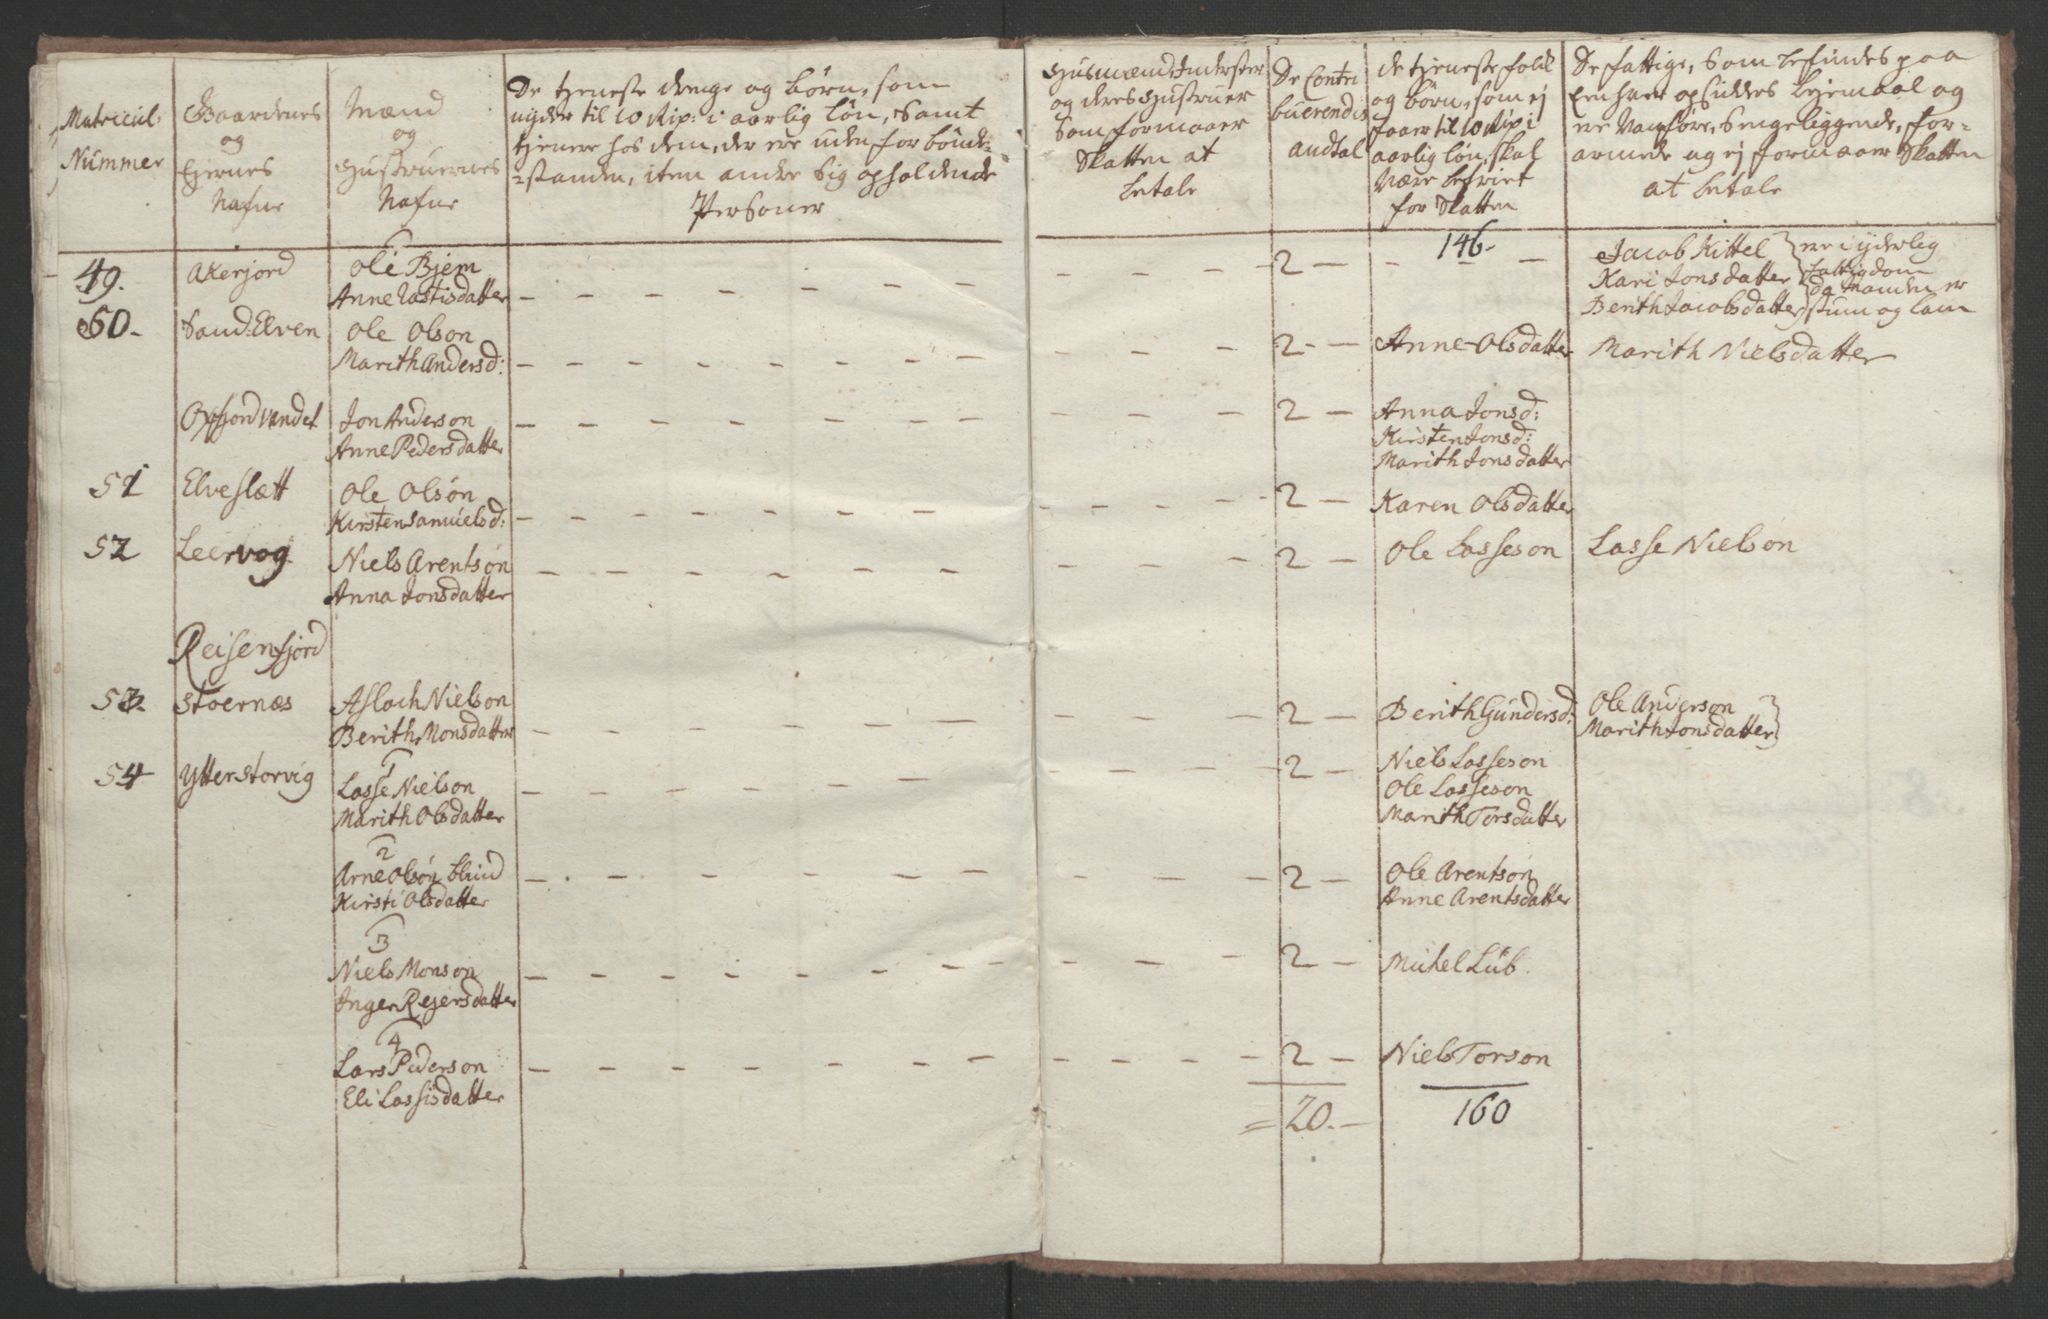 Matricul:
Nummer
Gaardenes
og
Ejernes
Nafne
Mænd
og
Hustruernes
Nafne
De tjeneste drenge og børn, som
nyder til 10 Rip: i aarlig løn, Samt
tjenere hos dem, der ere uden for bonde-
-standen, item andre Sig opholdende
Personer
Husmænd, Inderster
og deres Hustruer
Som formaaer
Skatten at
betale
De Contri
buerendis
andtal
de tjeneste folk
og børn, som ej
faaer til 10 Rip i
aarlig løn, skal
være befriet
for Skatten
De fattige, Som befindes paa
Enhver opsidders lejemaal og
ere Vanføre, Sengeliggende, for-
armede og ej formaaer Skatten
at betale
49. Akerjord Ole Bjem
Anne 2 146.
Jacob Kittel
Kari Jonsdatter
Berith Jacobsdatter
ere i yderlig
fattigdom
og Manden er
stum og lam
50. Sand:Elven Ole Olson
Marith Andersd: 2 Anne Olsdatter Marith Nielsdatter
Oxfjordvandet Jon Anderson
Anne Pedersdatter 2 Anna Jonsd:
Kirsten Jonsd:
Marith Jonsdatter
51 Elveslætt Ole Olsøn
Kirsten Samuelsd: 2 Karen Olsdatter
52 Leervog Niels Arentsøn
Anna Jonsdatter 2 Ole Lasseson Lasse Nielson
Reisenfjord
53. Stoernæs Aslach Nielson
Berith Monsdatter 2 Berith Gundersd: Ole Anderson
Marith Jonsdatter
54 Ytterstorvig 1
Lasse Nielson
Marith Olsdatter 2 Niels Lasseson
Ole Lasseson
Marith Torsdatter
2
Arne Olsøn blind
Kirsti Olsdatter 2 Ole Arentsøn
Anne Arentsdatter
3
Niels Monson
Inger Rejersdatter 2 Michel Lüb.
4
Lars Pederson
Eli Lassisdatter 2 Niels Torson
= 20. 160